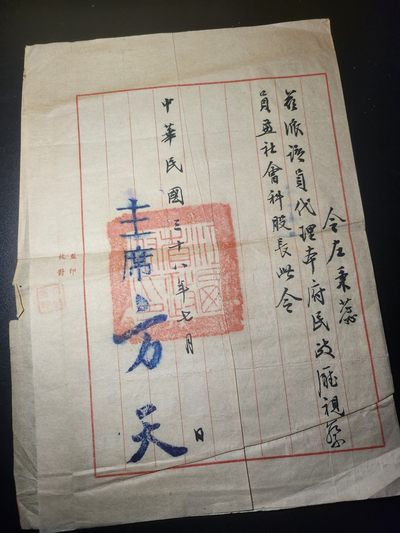 令左秉
茲派該員代理本府民政廳視察
員並社會科股長此令
中華民國三十八年七月 日
主席方天
監印
校對